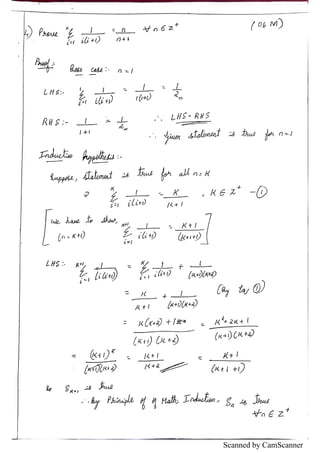 (06 M)
4) Prove n Σ i=1 1/i(i+1) = n/n+1 ∀n ∈ Z⁺
Proof:
Base case :- n = 1
LHS:- 1 Σ i=1 1/i(i+1) = 1/1(1+1) = 1/2
RHS :- 1/1+1 = 1/2 ∴ LHS = RHS
∴ given statement is true for n=1
Inductive hypothesis :-
Suppose, statement is true for all n=K
K Σ i=1 1/i(i+1) = K/K+1 , K ∈ Z⁺ –①
[ we have to show, K+1 Σ i=1 1/i(i+1) = K+1/(K+1+1) ]
(n = K+1)
LHS :- K+1 Σ i=1 1/(i(i+1)) = K Σ i=1 1/i(i+1) + 1/(K+1)(K+2)
= K/K+1 + 1/(K+1)(K+2) (By eq ①)
= K(K+2) + 1/(K+1)(K+2) = K²+2K+1/(K+1)(K+2)
= (K+1)²/(K+1)(K+2) = K+1/K+2 = K+1/(K+1+1)
So Sₖ₊₁ is true
∴ By Principle of Math Induction, Sₙ is true
∀n ∈ Z⁺
Scanned by CamScanner